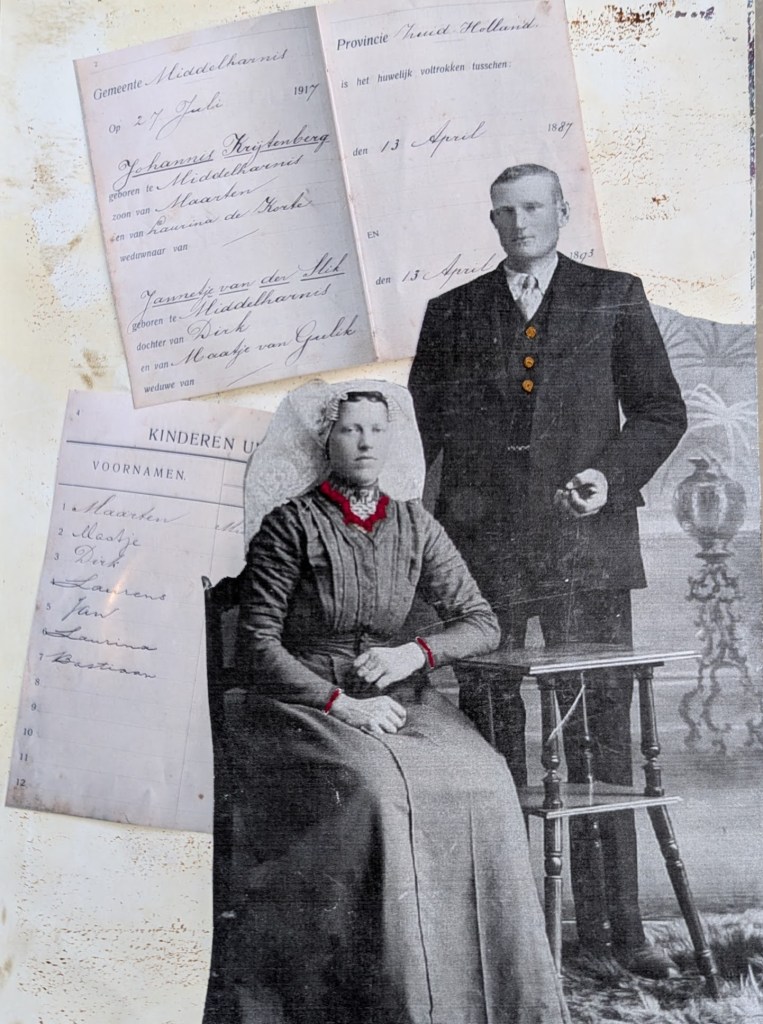 2
Gemeente Middelharnis
Op 27 Juli 1917
Johannis Krijtenberg
geboren te Middelharnis
zoon van Maarten
en van Laurina de Korte
weduwnaar van
Jannetje van der Slik
geboren te Middelharnis
dochter van Dirk
en van Maatje van Gulik
weduwe van
Provincie Zuid-Holland
is het huwelijk voltrokken tusschen:
den 13 April 1887
EN
den 13 April 1893
4
KINDEREN U
VOORNAMEN.
1 Maarten
2 Maatje
3 Dirk
Laurens
5 Jan
6 Laurina
7 Bastiaan
8
9
10
11
12